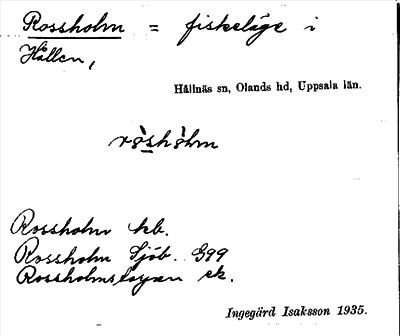 Rossholm = fiskeläge i
Hållen,
Hållnäs sn, Olands hd, Uppsala län.
ròshòlm
Rossholm kb.
Rossholm Sjöb. G99
ek.
Ingegärd Isaksson 1935.